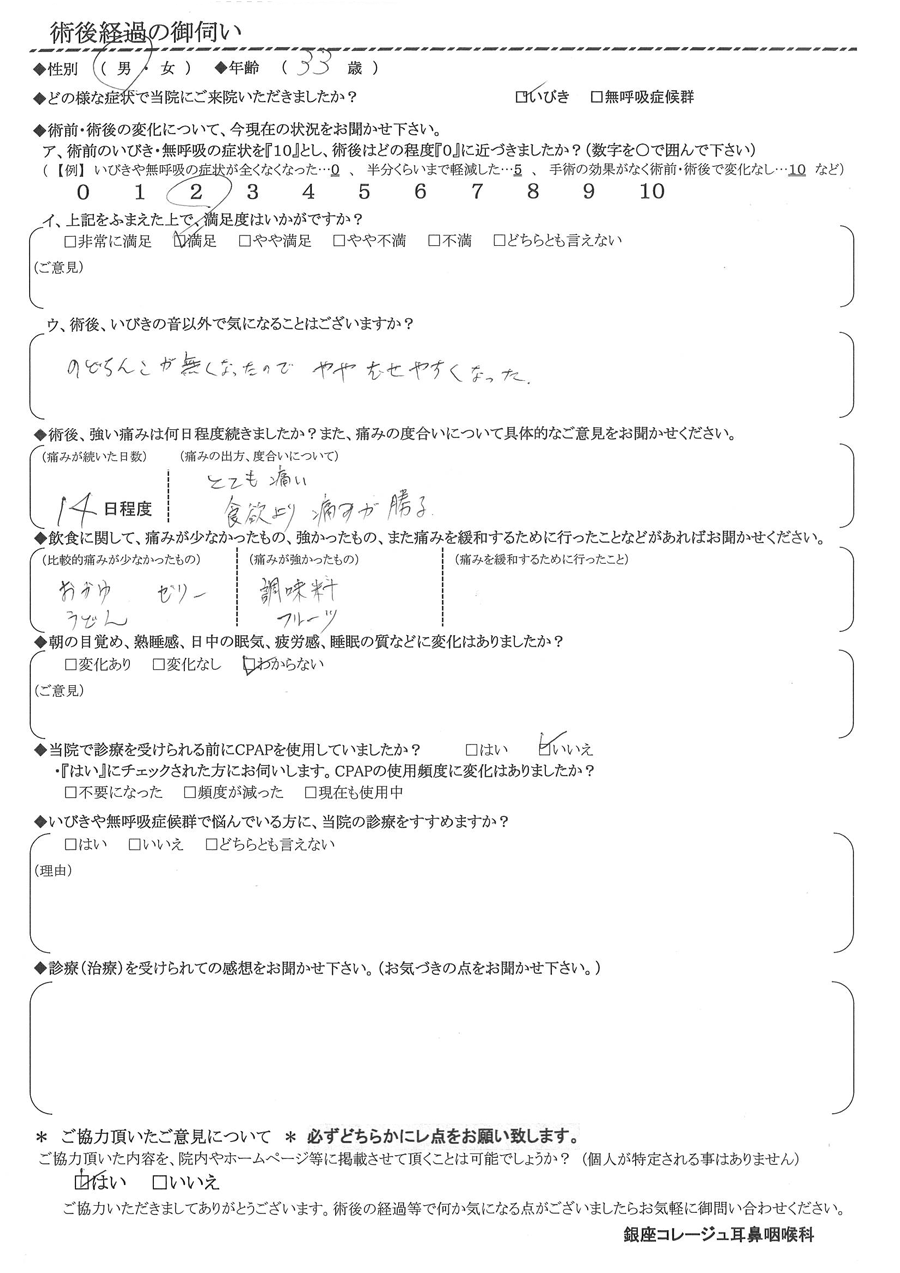 術後経過の御伺い
◆性別 ( 男 ・ 女 ) ◆年齢 ( 33 歳 )
◆どの様な症状で当院にご来院いただきましたか？ ☑いびき □無呼吸症候群
◆術前・術後の変化について、今現在の状況をお聞かせ下さい。
ア、術前のいびき・無呼吸の症状を『10』とし、術後はどの程度『0』に近づきましたか？(数字を〇で囲んで下さい)
(【例】いびきや無呼吸の症状が全くなくなった…0 、 半分くらいまで軽減した…5 、 手術の効果がなく術前・術後で変化なし…10 など)
0 1 2 3 4 5 6 7 8 9 10
イ、上記をふまえた上で、満足度はいかがですか？
□非常に満足 ☑満足 □やや満足 □やや不満 □不満 □どちらとも言えない
(ご意見)
ウ、術後、いびきの音以外で気になることはございますか？
のどちんこが無くなったので やや むせやすくなった.
◆術後、強い痛みは何日程度続きましたか？また、痛みの度合いについて具体的なご意見をお聞かせください。
(痛みが続いた日数) (痛みの出方、度合いについて)
とても痛い
14 日程度 食欲より 痛すが勝る.
◆飲食に関して、痛みが少なかったもの、強かったもの、また痛みを緩和するために行ったことなどがあればお聞かせください。
(比較的痛みが少なかったもの) (痛みが強かったもの) (痛みを緩和するために行ったこと)
おかゆ ゼリー 調味料
うどん フルーツ
◆朝の目覚め、熟睡感、日中の眠気、疲労感、睡眠の質などに変化はありましたか？
□変化あり □変化なし ☑わからない
(ご意見)
◆当院で診療を受けられる前にCPAPを使用していましたか？ □はい ☑いいえ
・『はい』にチェックされた方にお伺いします。CPAPの使用頻度に変化はありましたか？
□不要になった □頻度が減った □現在も使用中
◆いびきや無呼吸症候群で悩んでいる方に、当院の診療をすすめますか？
□はい □いいえ □どちらとも言えない
(理由)
◆診療(治療)を受けられての感想をお聞かせ下さい。(お気づきの点をお聞かせ下さい。)
＊ ご協力頂いたご意見について ＊ 必ずどちらかにレ点をお願い致します。
ご協力頂いた内容を、院内やホームページ等に掲載させて頂くことは可能でしょうか？ (個人が特定される事はありません)
☑はい □いいえ
ご協力いただきましてありがとうございます。術後の経過等で何か気になる点がございましたらお気軽に御問い合わせください。
銀座コレージュ耳鼻咽喉科